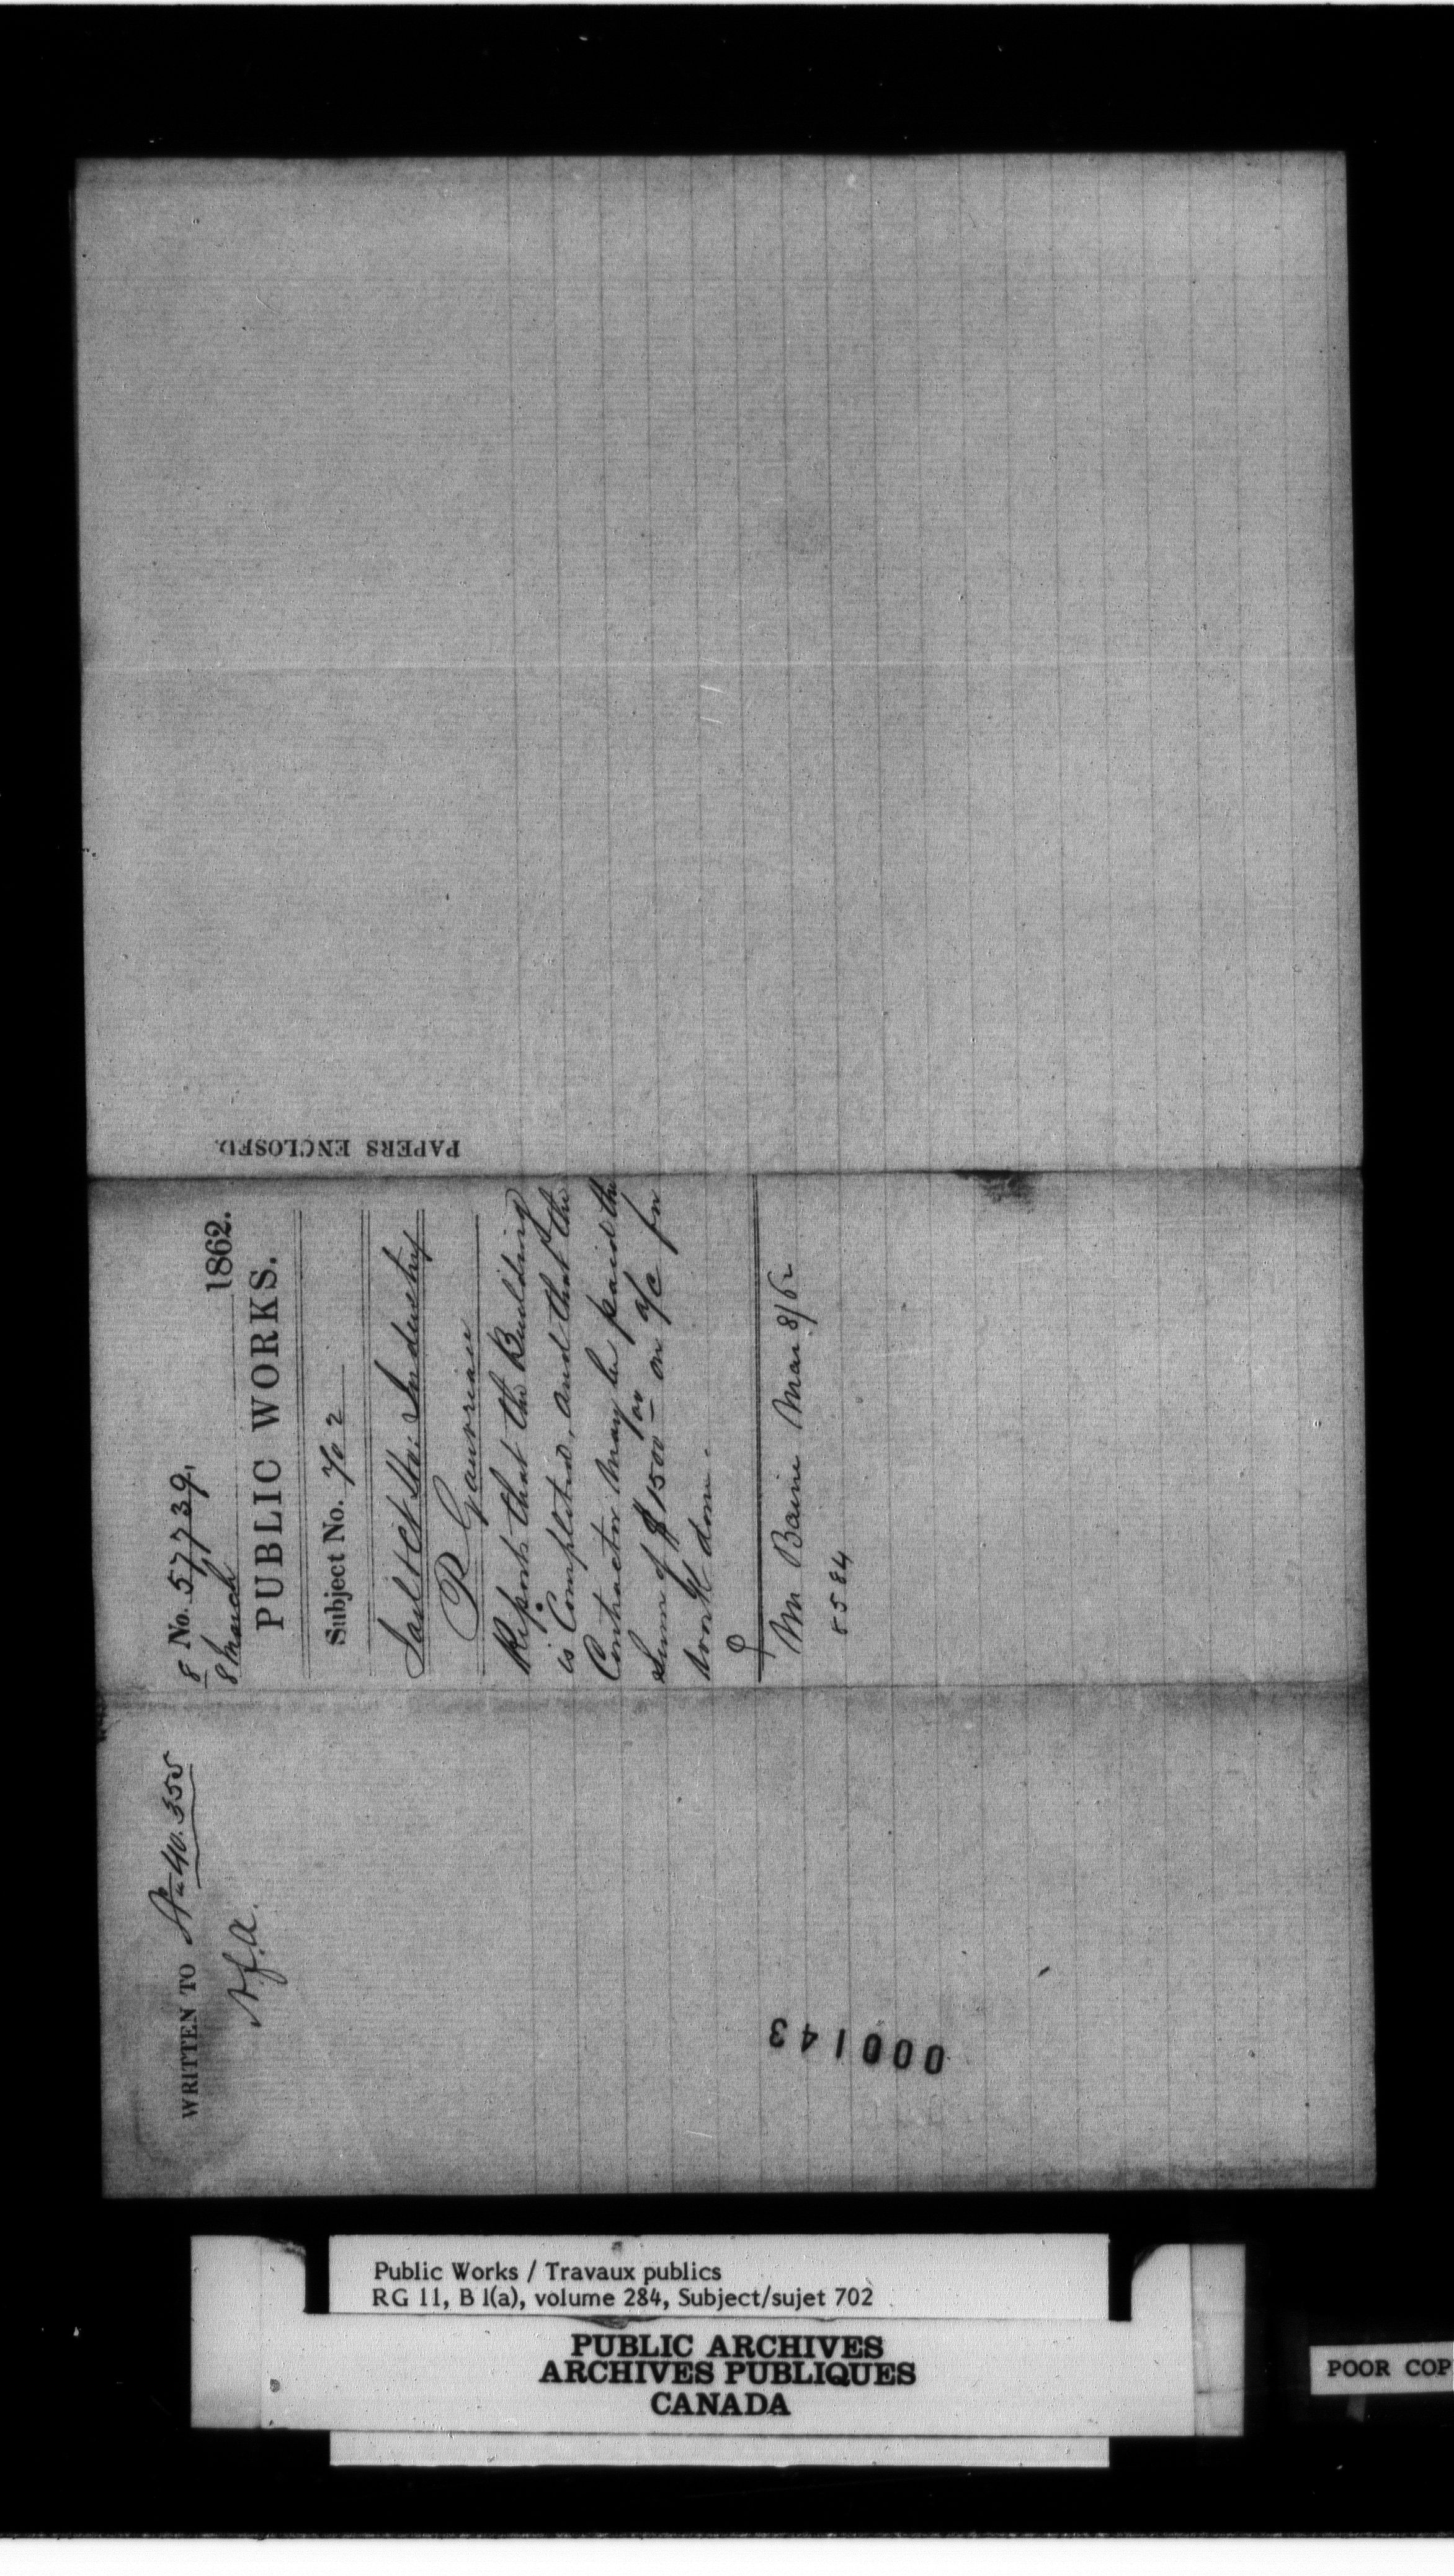 8 No. 57739.
8 March 1862.
PUBLIC WORKS.
Subject No. 702
Jail & Ct Ho: Industry
P Gauvreau
Reports that the Building
is Completed, and that the
Contractor may be paid the
Sum of $1500 00 on a/c for
work done.
Mr Baine Mar 8/62
8584
PAPERS ENCLOSED.
WRITTEN TO 40.355
000143
Public Works / Travaux publics
RG 11, B 1(a), volume 284, Subject/sujet 702
PUBLIC ARCHIVES
ARCHIVES PUBLIQUES
CANADA
POOR COP